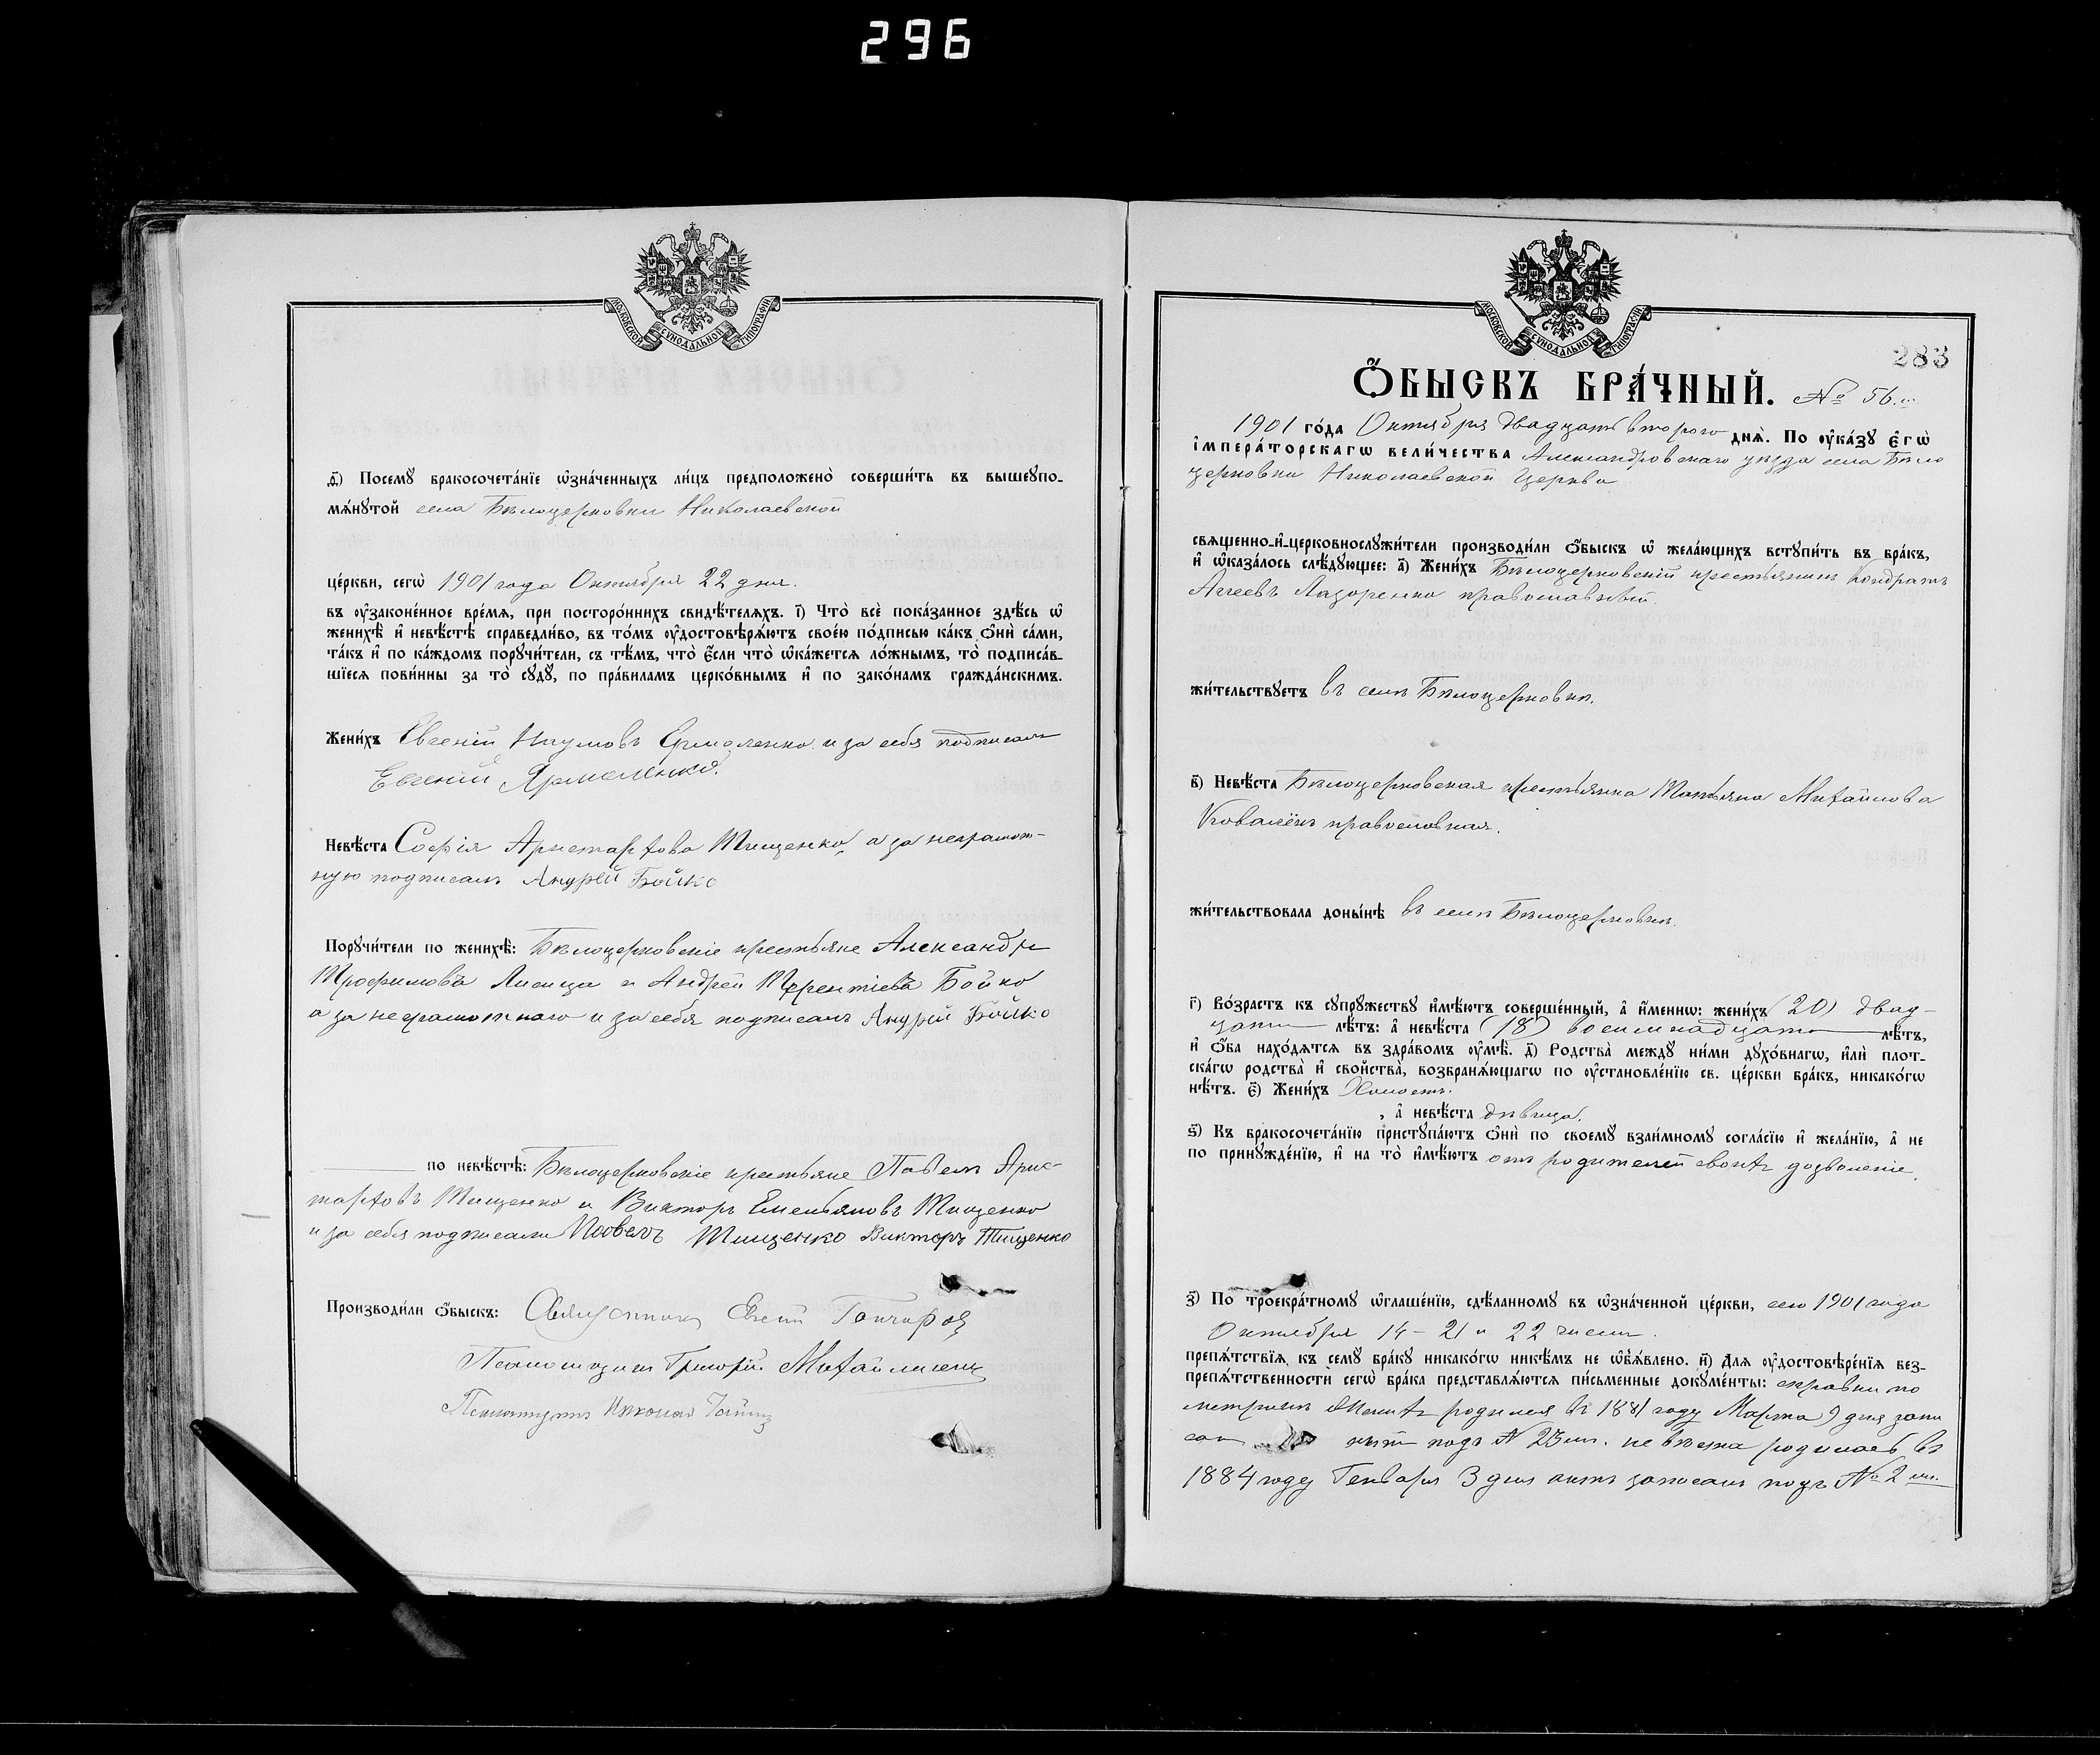 296
МОСКОВСКОЙ СѴНОДАЛЬНОЙ ТИПОГРАФІИ
ѳ҃) Посемꙋ бракосочета́нїе ѡ҆зна́ченныхъ ли́цъ предположено̀ соверши́ть въ вышеꙋпо-
мѧ́нꙋтой села Бѣлоцерковки Николаевской
це́ркви, сегѡ̀ 1901 года Октября 22 дня.
въ ᲂу҆зако́не́нное вре́мѧ, при посторо́ннихъ свидѣ́телѧхъ. і҃) Что̀ всѐ пока́занное здѣ́сь ѡ҆
женихѣ̀ и҆ невѣ́стѣ справедли́во, въ то́мъ ᲂу҆достовѣрѧ́ютъ свое́ю по́дписью ка́къ ѻ҆нѝ са́ми,
та́къ и҆ по ка́ждомъ порꙋчи́тели, съ тѣ́мъ, что̀ є҆́сли что̀ ѡ҆ка́жется ло́жнымъ, то̀ подписа́в-
шїесѧ пови́нны за то̀ сꙋдꙋ̀, по пра́виламъ церко́внымъ и҆ по зако́намъ гражда́нскимъ.
Жени́хъ Евгеній Наумовъ Ермоленко и за себя подписалъ
Евгеній Ярмоленко.
Невѣ́ста Софія Аристархова Тищенко, а за неграмот-
ную подписалъ Андрей Бойко
Порꙋчи́тели по женихѣ̀: Бѣлоцерковскіе крестьяне Александръ
Трофимовъ Лисица и Андрей Терентіевъ Бойко
а за неграмотнаго и за себя подписалъ Андрій Бойко
по невѣ́стѣ: Бѣлоцерковскіе крестьяне Павелъ Арис-
тарховъ Тищенко и Викторъ Емельяновъ Тищенко
и за себя подписали Павелъ Тищенко Викторъ Тищенко
Производи́ли ѻ҆́быскъ: Священникъ Евгеній Гончаровъ
Псаломщикъ Григорій Михайличенко
Псаломщикъ Николай
МОСКОВСКОЙ СѴНОДАЛЬНОЙ ТИПОГРАФІИ
283
Ѻ҆́БЫСКЪ БРА́ЧНЫЙ. № 56.й
1901 го́да Октября двадцать второго днѧ̀. По ᲂу҆ка́зꙋ є҆гѡ̀
і҆мпера́торскагѡ вели́чества Александровскаго уѣзда села Бѣло
церковки Николаевской Церкви
свѧщенно-и҆-церковнослꙋжи́тели производи́ли ѻ҆́быскъ ѡ҆ жела́ющихъ встꙋпи́ть въ бра́къ,
и҆ ѡ҆каза́лось слѣ́дꙋющее: а҃) Жени́хъ Бѣлоцерковскій крестьянинъ Кондратъ
Аггеевъ Лазоренко православный.
жи́тельствꙋетъ въ селѣ Бѣлоцерковкѣ.
в҃) Невѣ́ста Бѣлоцерковская крестьянка Татьяна Михайлова
Коваленъ православная.
жи́тельствовала доны́нѣ въ селѣ Бѣлоцерковкѣ.
г҃) Во́зрастъ къ сꙋпрꙋ́жествꙋ и҆мѣ́ютъ соверше́нный, а҆ и҆́меннѡ: жени́хъ (20) двад-
цать лѣ́тъ: а҆ невѣ́ста (18) восемнадцать лѣ́тъ,
и҆ ѻ҆́ба нахо́дѧтсѧ въ здра́вомъ ᲂу҆мѣ̀. д҃) Родства̀ междꙋ ни́ми дꙋхо́внагѡ, и҆лѝ плот-
ска́гѡ родства̀ и҆ сво́йства̀, возбранѧ́ющагѡ по ᲂу҆становле́нїю св. це́ркви бра́къ, никако́гѡ
нѣ́тъ. є҃) Жени́хъ Холостъ.
, а҆ невѣ́ста дѣвица.
ѕ҃) Къ бракосочета́нїю пристꙋпа́ютъ ѻ҆нѝ по своемꙋ̀ взаи́мномꙋ согла́сїю и҆ жела́нїю, а҆ не
по принꙋжде́нїю, и҆ на то̀ и҆мѣ́ютъ отъ родителей своихъ дозволеніе.
з҃) По троекра́тномꙋ ѡ҆глаше́нїю, сдѣ́ланномꙋ въ ѡ҆зна́ченной це́ркви, сего 1901 года
Октября 14 - 21 и 22 числъ.
препѧ́тствїѧ къ семꙋ̀ бра́кꙋ никако́гѡ никѣ́мъ не ѡ҆б̾ѧ́влено. и҃) Для ᲂу҆достовѣре́нїѧ без-
препѧ́тственности сегѡ̀ бра́ка представлѧ́ютсѧ пи́сьменные докꙋме́нты: справки по
метрикѣ Женихъ родился въ 1881 году Марта 9 дня запи
санъ актъ подъ № 23 мъ. невѣста родилась въ
1884 году Генваря 3 дня актъ записанъ подъ № 2 мъ.